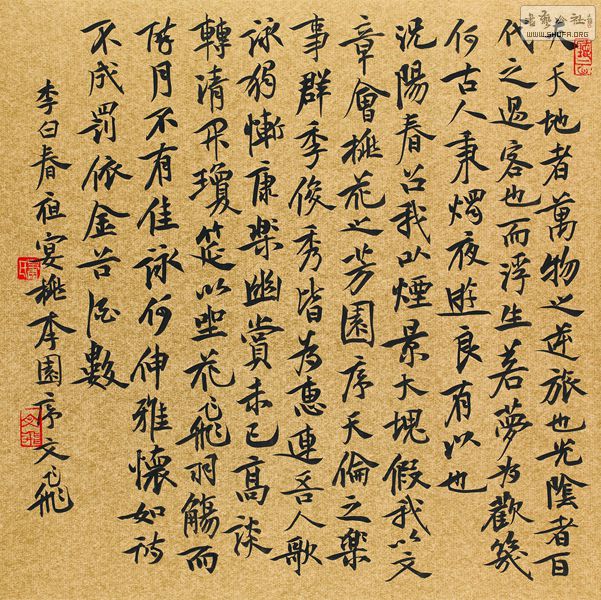 夫天地者萬物之逆旅也光陰者百
代之過客也而浮生若夢為歡幾
何古人秉燭夜遊良有以也
況陽春召我以煙景大塊假我以文
章會桃花之芳園序天倫之樂
事群季俊秀皆為惠連吾人歌
詠獨慚康樂幽賞未已高談
轉清開瓊筵以坐花飛羽觴而
醉月不有佳詠何伸雅懷如詩
不成罰依金谷酒數
李白春夜宴桃李園序文飛
WWW.SHUFA.ORG